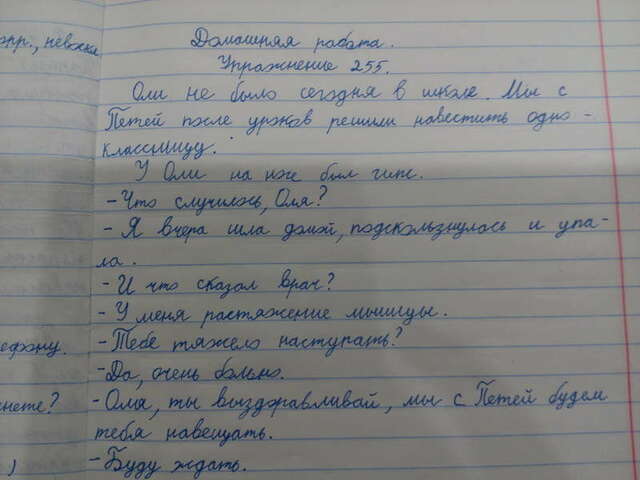 орр., невоскл
Домашняя работа.
Упражнение 255.
Оли не было сегодня в школе. Мы с
Петей после уроков решили навестить одно-
классницу.
У Оли на ноже был гипс.
- Что случилось, Оля?
- Я вчера шла домой, подскользнулась и упа-
ла.
- И что сказал врач?
- У меня растяжение мышцы.
ефону. - Тебе тяжело наступать?
- Да, очень больно.
нете? - Оля, ты выздоравливай, мы с Петей будем
тебя навещать.
) - Буду ждать.